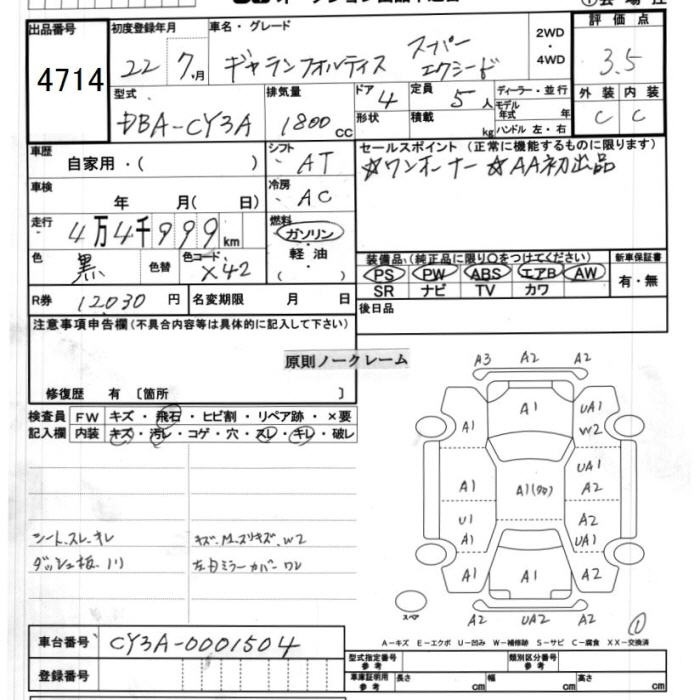 出品番号 初度登録年月 車名・グレード 2WD 評価点
4714 22 7月 ギャランフォルティス スーパー エクシード ・ 4WD 3.5
型式 排気量 ドア 4 定員 5人 ディーラー・並行 外装 内装
DBA-CY3A 1800cc 形状 積載 kg モデル年式 年 C C
ハンドル 左・右
車歴 自家用・( ) シフト AT セールスポイント (正常に機能するものに限ります)
車検 年 月( 日) 冷房 AC ☆ワンオーナー ☆AA初出品
走行 4万4千999km 燃料 ガソリン・軽油・( )
色 黒 色替 色コード X42 装備品(純正品に限り○をつけてください) 新車保証書
PS PW ABS エアB AW 有・無
SR ナビ TV カワ
R券 12030円 名変期限 月 日 後日品
注意事項申告欄(不具合内容等は具体的に記入して下さい)
原則ノークレーム
修復歴 有 〔箇所 〕
検査員 FW キズ・飛石・ヒビ割・リペア跡・×要
記入欄 内装 キズ・汚レ・コゲ・穴・スレ・キレ・破レ
シート.スレ.キレ
ダッシュ板.
キズ.
W2
左右ミラーカバー ワレ
A3 A2 A2
A1 UA1
A1 W2
UA1
A1 A1(90) A2
U1 A2
A1 UA1
A2 A1 A2
A2 UA2 A2
スペア ①
A-キズ E-エクボ U-凹み W-補修跡 S-サビ C-腐食 XX-交換済
車台番号 CY3A-0001504
型式指定番号 参考 類別区分番号 参考
登録番号 車庫証明用 参考 長さ cm 幅 cm 高さ cm